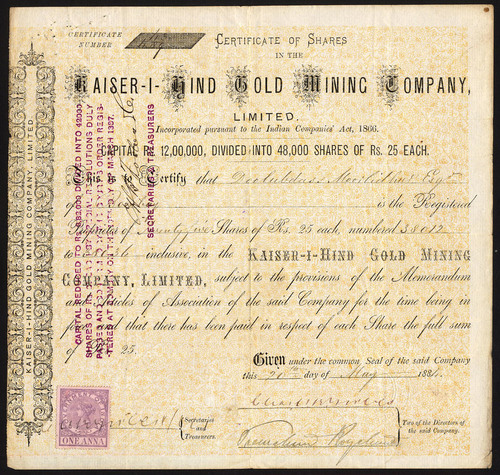 CERTIFICATE
NUMBER
CERTIFICATE OF SHARES
IN THE
KAISER-I-HIND GOLD MINING COMPANY,
LIMITED.
Incorporated pursuant to the Indian Companies' Act, 1866.
CAPITAL RS. 12,00,000, DIVIDED INTO 48,000 SHARES OF RS. 25 EACH.
This is to Certify that Esqr
of is the Registered
Proprietor of Twenty five Shares of Rs. 25 each, numbered 38012
to inclusive, in the KAISER-I-HIND GOLD MINING
COMPANY, LIMITED, subject to the provisions of the Memorandum
and Articles of Association of the said Company for the time being in
force, and that there has been paid in respect of each Share the full sum
of Rs. 25.
Given under the common Seal of the said Company
this 20th day of May 1881.
Secretaries
and
Treasurers.
Two of the Directors of
the said Company.
ONE ANNA
KAISER-I-HIND GOLD MINING COMPANY, LIMITED.
CAPITAL REDUCED TO RS. DIVIDED INTO 42000
SHARES OF RS. BY SPECIAL RESOLUTIONS DULY
PASSED AND ORDER REGIS-
TERED AT BOMBAY ON THE DAY OF MARCH 1887.
SECRETARIES & TREASURERS